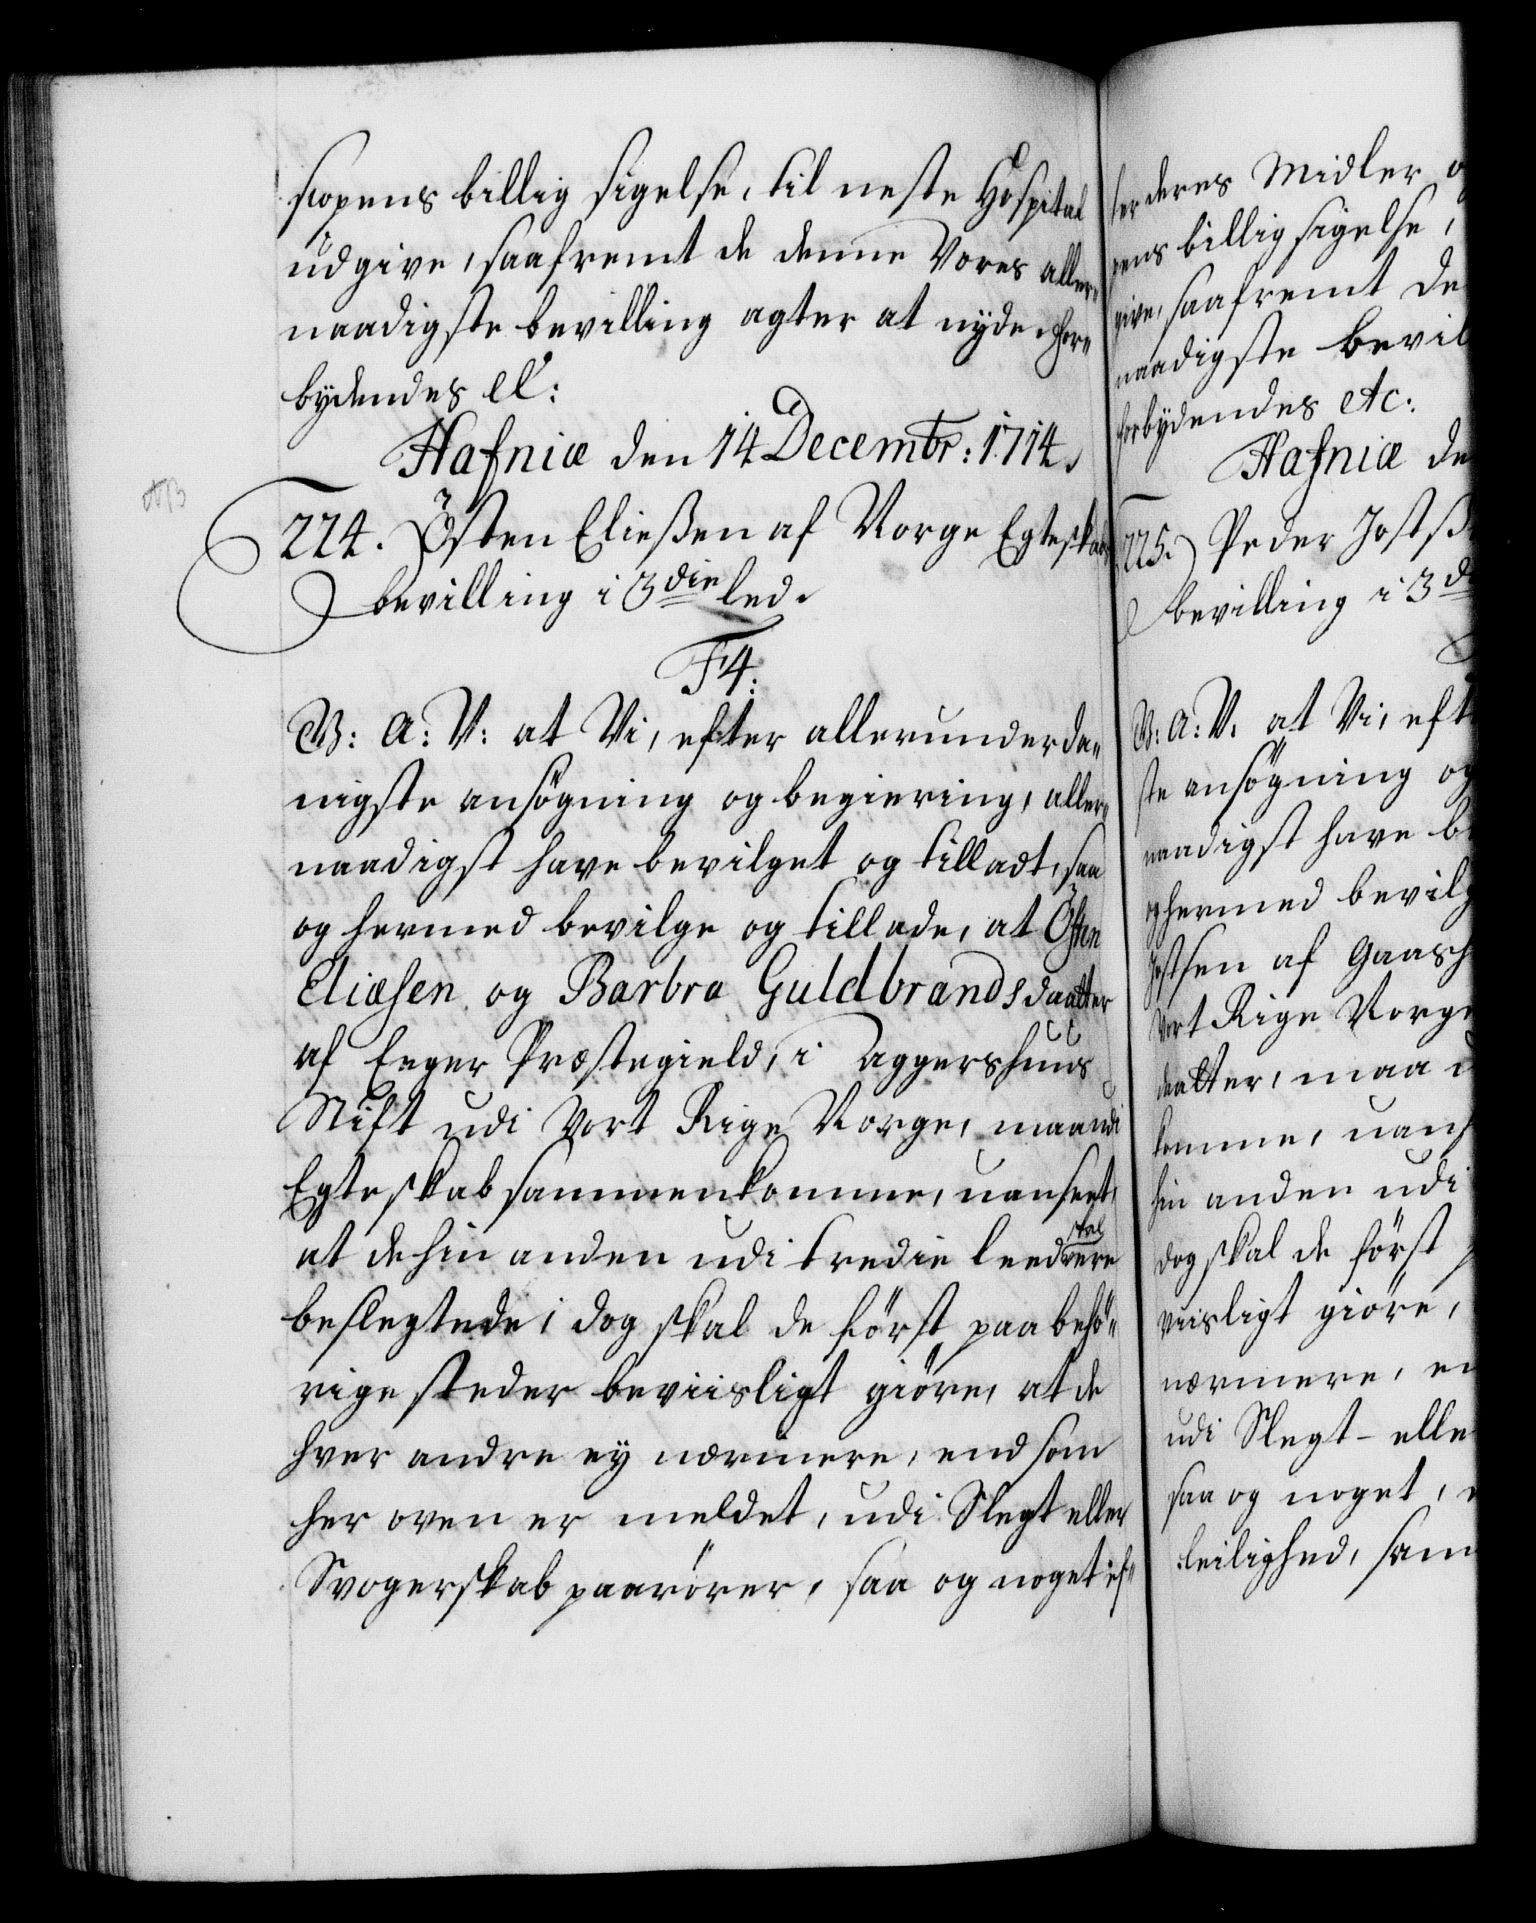 scopens billig sigelse, til neste Hospital
udgive, saafremt de denne Vores aller„
naadigste bevilling agter at nyde. For„
bydendes etc:
Hafniæ den 14 Decembr: 1714.
224. Östen Eließen af Norge Egteskabs
bevilling i 3die led.
F4:
V: A: V: at Vi, efter allerunderda„
nigste ansögning og begiering, aller„
naadigst have bevilget og tilladt, saa
og hermed bevilge og tillade, at Östen
Eliæsen og Barbra Guldbrandsdaatter
af Eeger Præstegield, i Aggershuus
Stift udi Vort Rige Norge, maa udi
Egteskab sammenkomme, uanseet,
at de hin anden udi tredie leed skal være
beslegtede; dog skal de först paa behö„
rige steder beviisligt giöre, at de
hver andre ey nærmere, end som
her oven er meldet, udi Slegt eller
Svogerskab paarörer, saa og noget ef„
ter deres Midler o
pens billig sigelse,
give, saafremt de
naadigste bevil
forbydendes etc:
Hafniæ de
225. Peder Jostß
bevilling i 3d
V: A: V: at Vi, eft
ste ansögning og
naadigst have be
og hermed bevilg
Jostsen af Gaash
Vort Rige Norge
daatter, maa u
komme, uans
hin anden udi
dog skal de först
viisligt giöre,
nærmere, en
udi Slegt- elle
saa og noget,
leilighed, sam